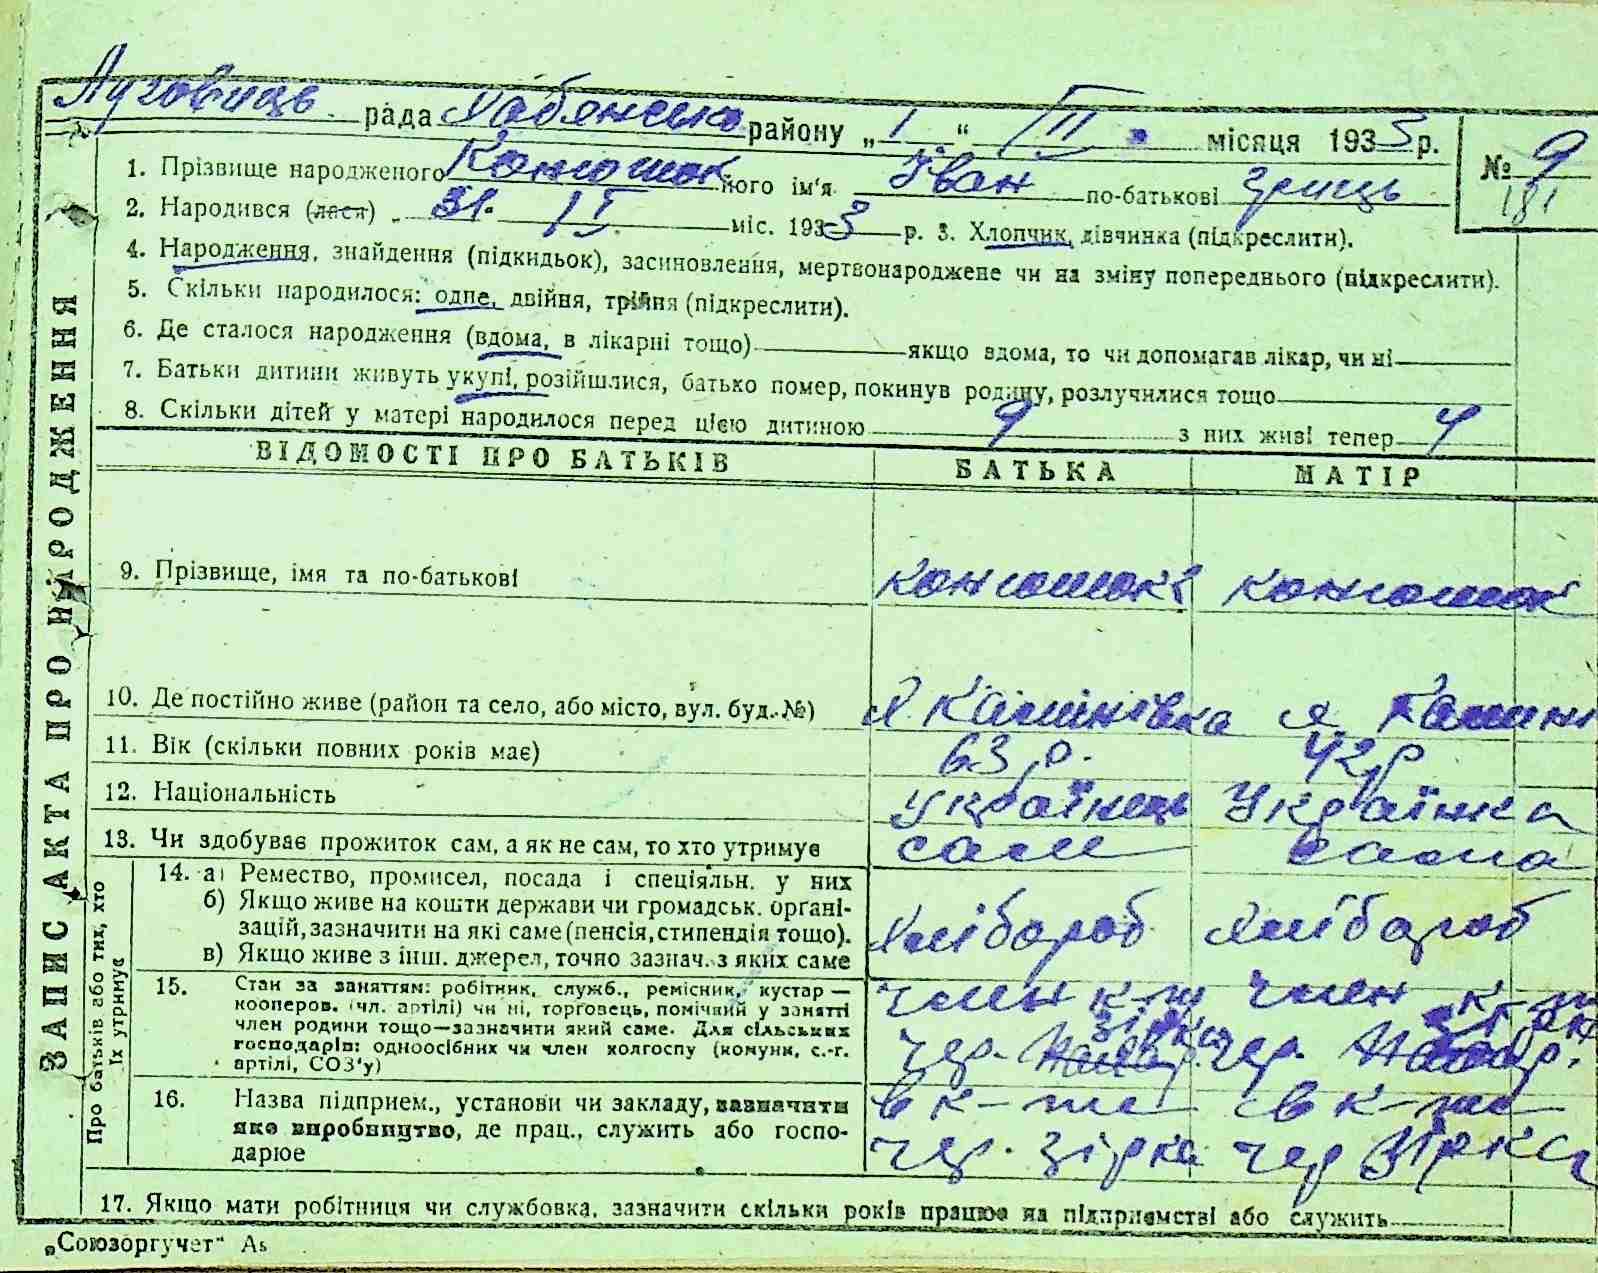 Луговиць рада Хабянська району „ 1 “ III місяця 1933 р.
№ 9
181
1. Прізвище народженого Конюшок його ім'я Іван по-батькові Гриць
2. Народився (лася) 31. міс. 1933 р. 3. Хлопчик, дівчинка (підкреслити).
4. Народження, знайдення (підкидьок), засиновлення, мертвонароджене чи на зміну попереднього (підкреслити).
5. Скільки народилося: одне, двійня, трійня (підкреслити).
6. Де сталося народження (вдома, в лікарні тощо) якщо вдома, то чи допомагав лікар, чи ні
7. Батьки дитини живуть укупі, розійшлися, батько помер, покинув родину, розлучилися тощо
8. Скільки дітей у матері народилося перед цією дитиною 9 з них живі тепер 4
ВІДОМОСТІ ПРО БАТЬКІВ БАТЬКА МАТІР
9. Прізвище, імя та по-батькові Конюшок Конюшок
10. Де постійно живе (район та село, або місто, вул. буд. №) Камінівка
11. Вік (скільки повних років має) 63 р. 42 р
12. Національність Українець Українка
13. Чи здобуває прожиток сам, а як не сам, то хто утримує сам сама
14. а) Ремество, промисел, посада і спеціяльн. у них
б) Якщо живе на кошти держави чи громадськ. органі-
зацій, зазначити на які саме (пенсія, стипендія тощо). Хлібороб Хлібороб
в) Якщо живе з інш. джерел, точно зазнач. з яких саме
15. Стан за заняттям: робітник, служб., ремісник, кустар —
кооперов. (чл. артілі) чи ні, торговець, помічний у занятті
член родини тощо—зазначити який саме. Для сільських
господарів: одноосібних чи член колгоспу (комуни, с.-г.
артілі, СОЗ'у)
член к-ту член к-ту
чер. Зірка чер. Зірка
16. Назва підприєм., установи чи закладу, зазначити
яке виробництво, де прац., служить або госпо-
дарює
в к-ті в к-ті
чер. Зірка чер Зірка
17. Якщо мати робітниця чи службовка, зазначити скільки років працює на підприємстві або служить
„Союзоргучет“ Аз
ЗАПИС АКТА ПРО НАРОДЖЕННЯ
Про батьків або тих, хто
їх утримує